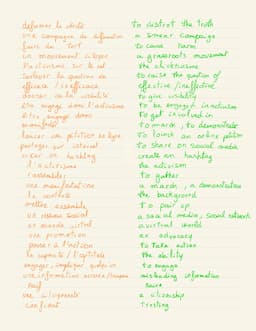 déformer la vérité	to distort the truth
une campagne de diffamation	a smear campaign
faire du tort	to cause harm
un mouvement citoyen	a grassroots movement
l'activisme sur le net	the clicktivism
soulever la question de	to raise the question of
efficace / inefficace	effective / ineffective
donner de la visibilité	to give visibility
être engagé dans l'activisme	to be engaged in activism
être engagé dans	to get involved in
manifester	to march, to demonstrate
lancer une pétition en ligne	to launch an online petition
partager sur internet	to share on social media
créer un hashtag	create an hashtag
l'activisme	the activism
rassembler	to gather
une manifestation	a march, a demonstration
le contexte	the background
mettre ensemble	to pair up
un réseau social	a social media, social network
un monde virtuel	a virtual world
une promotion	an advocacy
passer à l'action	to take action
la capacité / l'aptitude	the ability
engager, impliquer quelqu'un	to engage
une information erronée / trompeuse	misleading information
naïf	naive
une citoyenneté	a citizenship
confiant	trusting